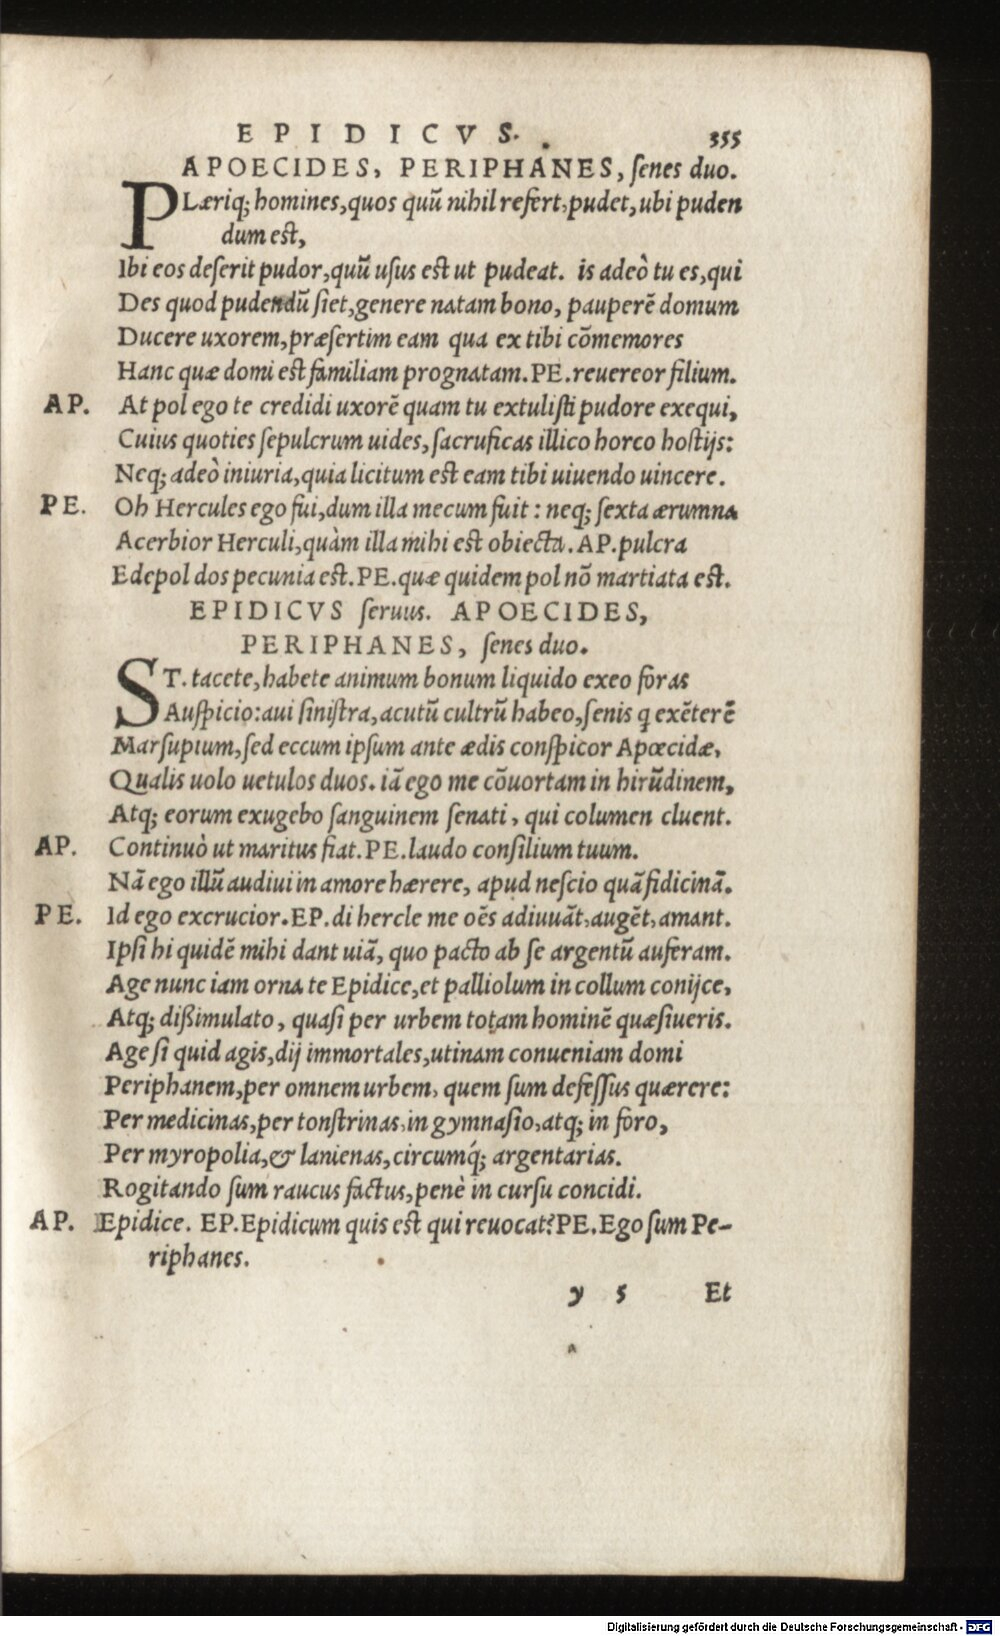 EPIDICVS. 355
APOECIDES, PERIPHANES, ſenes duo.
PLæriq; homines, quos quũ nihil refert, pudet, ubi puden
dum eſt,
Ibi eos deſerit pudor, quũ uſus eſt ut pudeat. is adeò tu es, qui
Des quod pudendũ ſiet, genere natam bono, pauperẽ domum
Ducere uxorem, præſertim eam qua ex tibi cõmemores
Hanc quæ domi eſt familiam prognatam. PE. reuereor filium.
AP. At pol ego te credidi uxorẽ quam tu extuliſti pudore exequi,
Cuius quoties ſepulcrum uides, ſacruficas illico horco hoſtijs:
Neq; adeò iniuria, quia licitum eſt eam tibi uiuendo uincere.
PE. Oh Hercules ego fui, dum illa mecum fuit: neq; ſexta ærumna
Acerbior Herculi, quàm illa mihi eſt obiecta. AP. pulcra
Edepol dos pecunia eſt. PE. quæ quidem pol nõ martiata eſt.
EPIDICVS ſeruus. APOECIDES,
PERIPHANES, ſenes duo.
ST. tacete, habete animum bonum liquido exeo foras
Auſpicio: aui ſiniſtra, acutũ cultrũ habeo, ſenis q exẽterẽ
Marſupium, ſed eccum ipſum ante ædis conſpicor Apœcidæ,
Qualis uolo uetulos duos. iã ego me cõuortam in hirũdinem,
Atq; eorum exugebo ſanguinem ſenati, qui columen cluent.
AP. Continuò ut maritus fiat. PE. laudo conſilium tuum.
Nã ego illũ audiui in amore hærere, apud neſcio quã fidicinã.
PE. Id ego excrucior. EP. di hercle me oẽs adiuuãt, augẽt, amant.
Ipſi hi quidẽ mihi dant uiã, quo pacto ab ſe argentũ auferam.
Age nunc iam orna te Epidice, et palliolum in collum conijce,
Atq; dißimulato, quaſi per urbem totam hominẽ quæſiueris.
Age ſi quid agis, dij immortales, utinam conueniam domi
Periphanem, per omnem urbem, quem ſum defeſſus quærere:
Per medicinas, per tonſtrinas, in gymnaſio, atq; in foro,
Per myropolia, & lanienas, circumq́; argentarias.
Rogitando ſum raucus factus, penè in curſu concidi.
AP. Epidice. EP. Epidicum quis eſt qui reuocat? PE. Ego ſum Pe-
riphanes.
y 5 Et
Digitalisierung gefördert durch die Deutsche Forschungsgemeinschaft - DFG